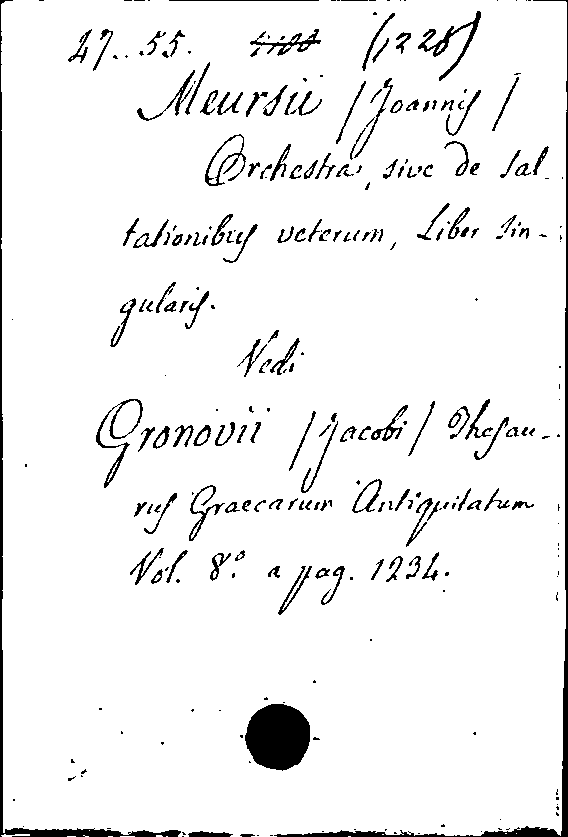 47.. 55. (1228)
Meursii / Joannis /
Orchestra, sive de Sal-
tationibus veterum, Liber Sin-
gularis.
Vedi
Gronovii / Jacobi / Thesau-
rus Graecarum Antiquitatum
Vol. 8.° a pag. 1234.